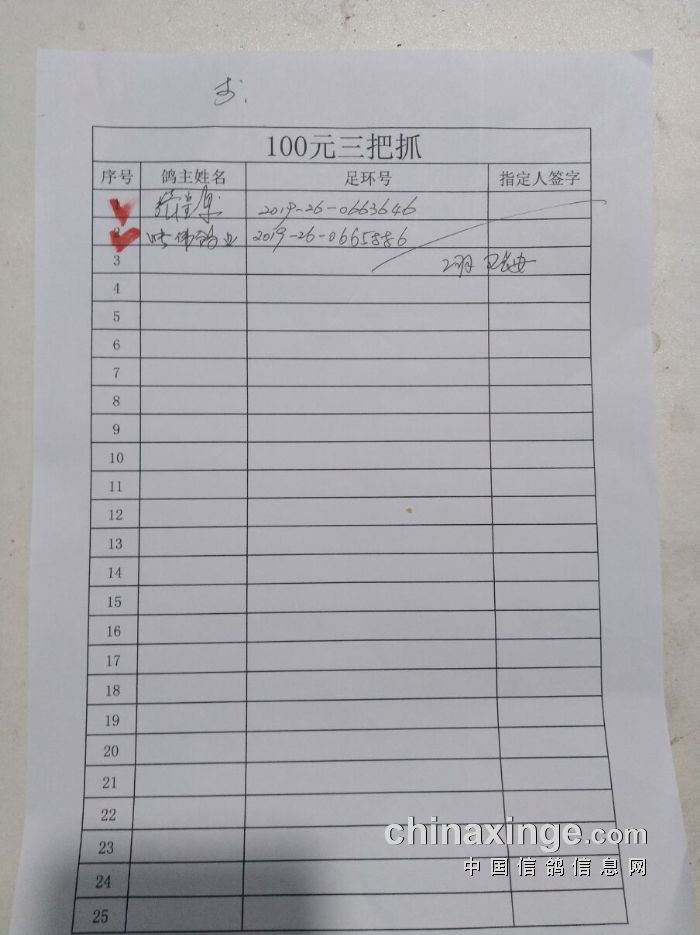 100元三把抓
序号 鸽主姓名 足环号 指定人签字
1 2019-26-0663646
2 鸽业 2019-26-0665886
3 2羽
4
5
6
7
8
9
10
11
12
13
14
15
16
17
18
19
20
21
22
23
24
25
chinaxinge.com
中国信鸽信息网